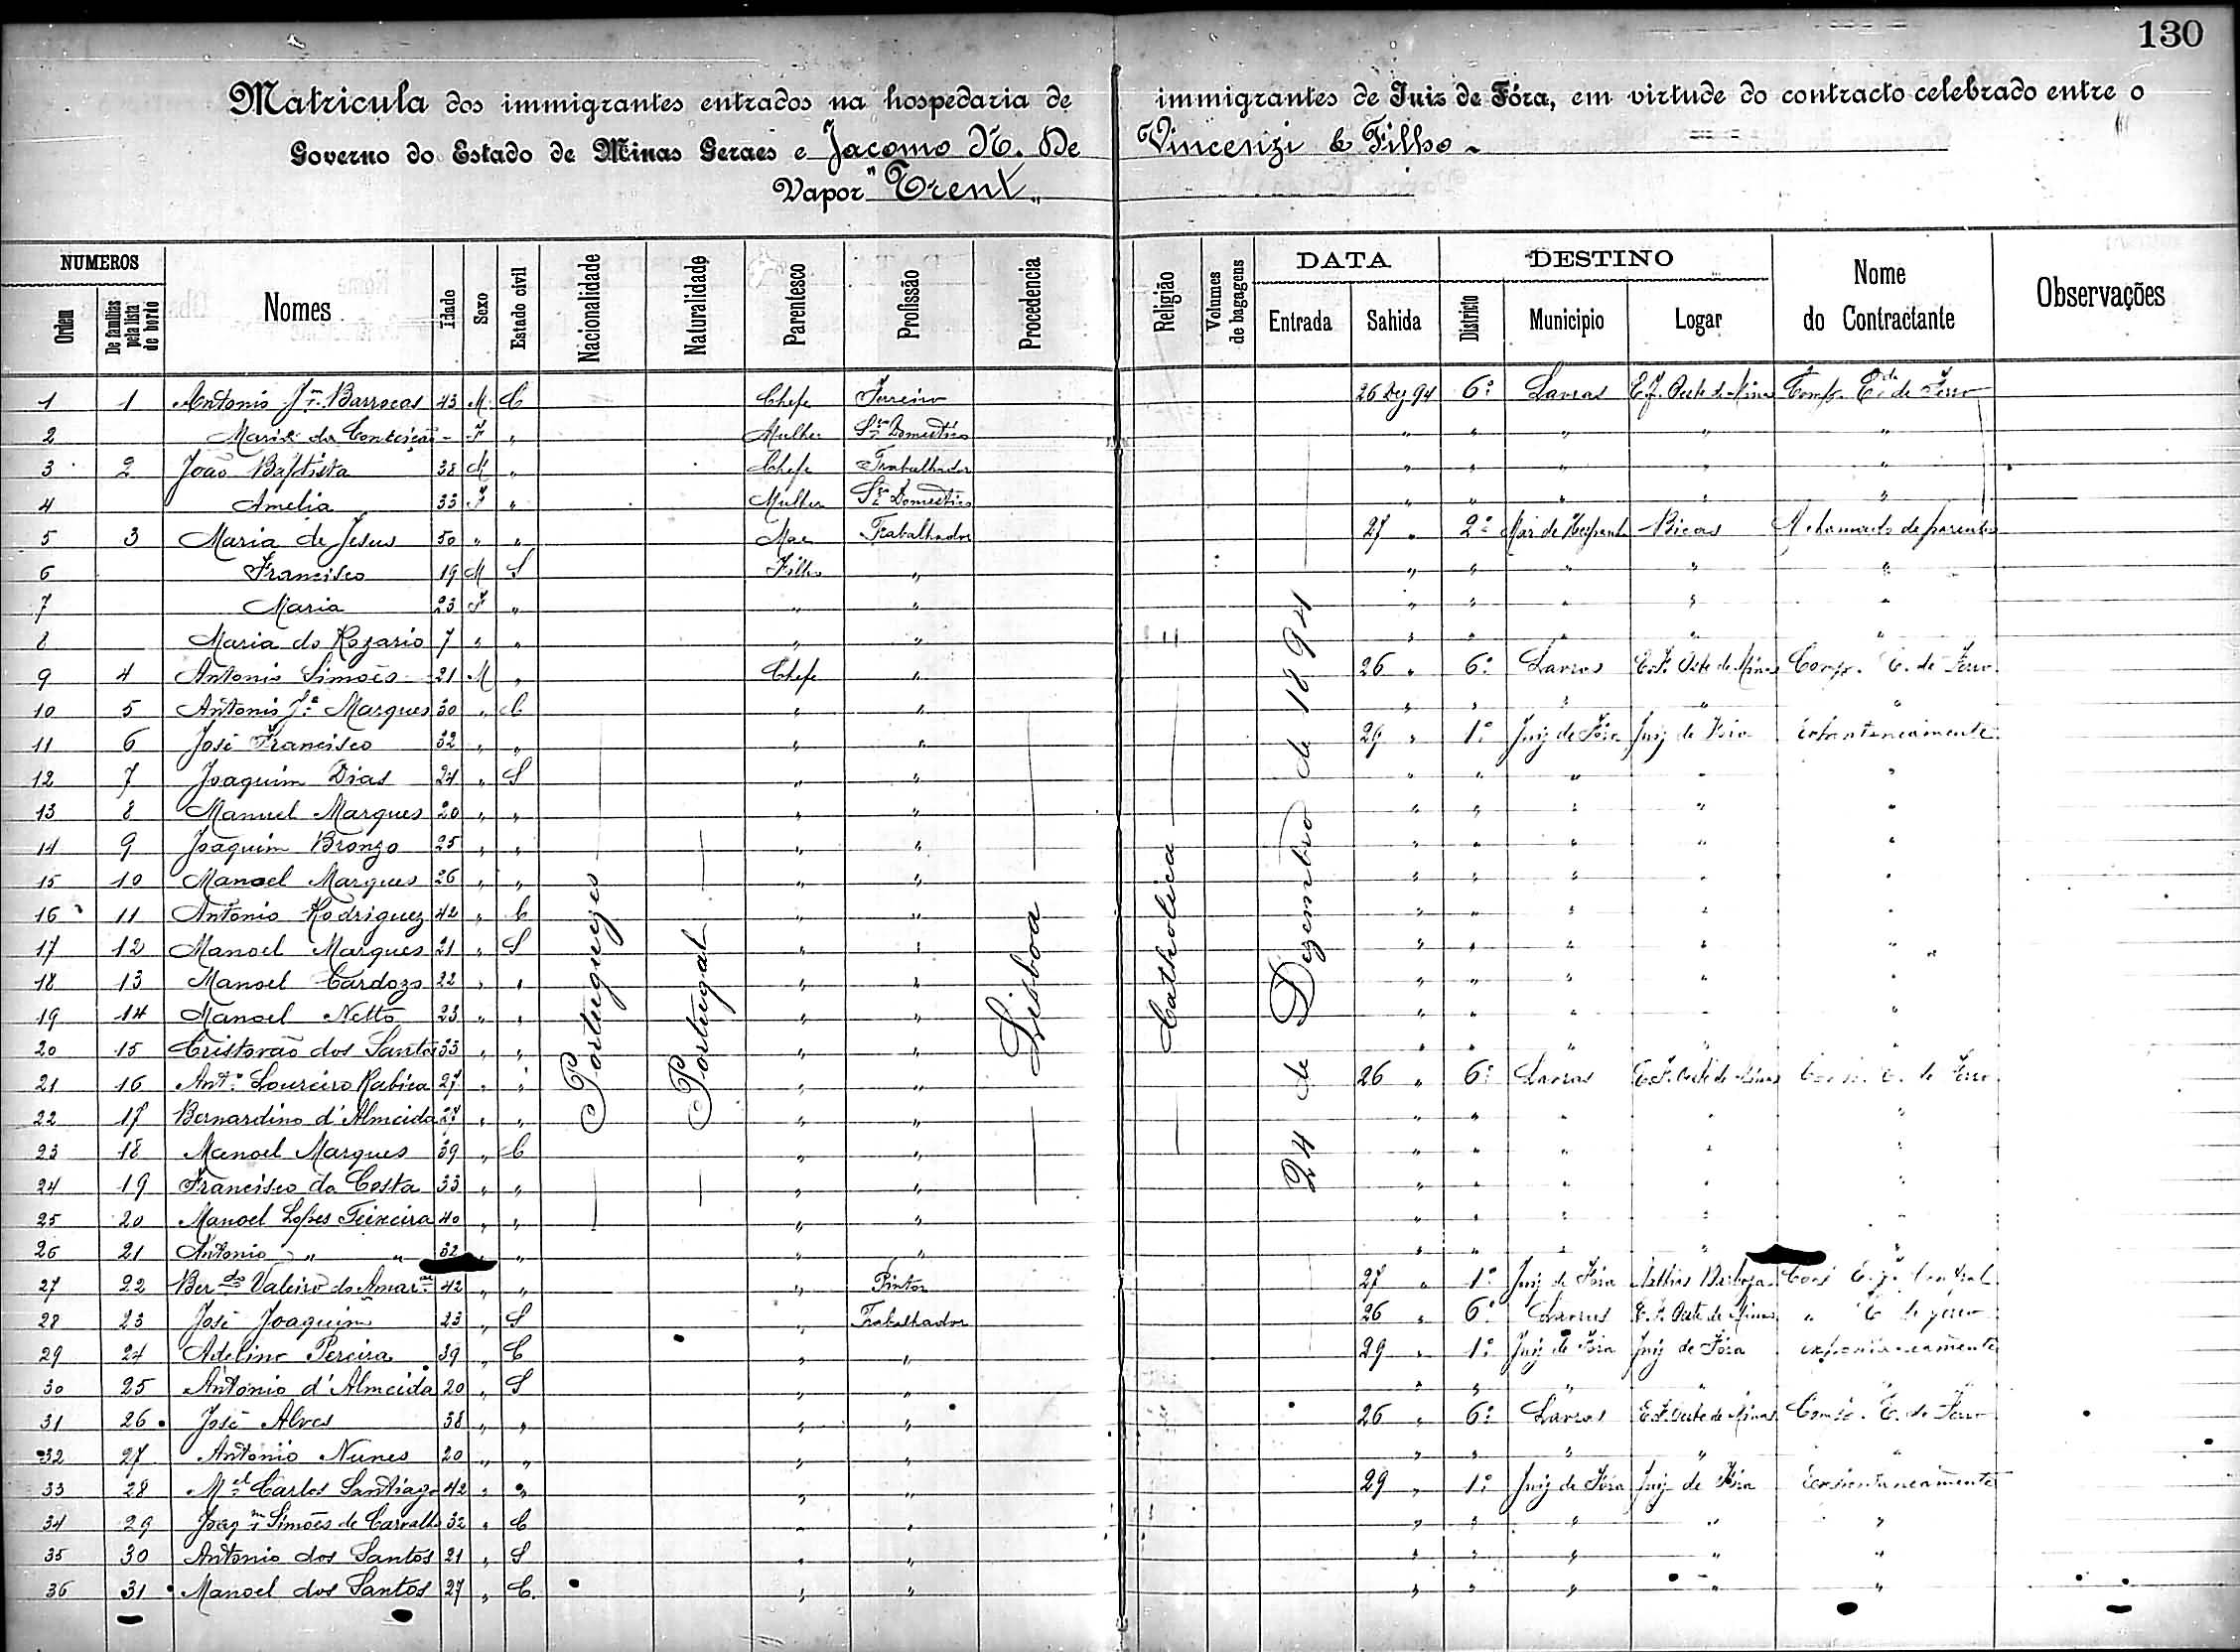 130
Matricula dos immigrantes entrados na hospedaria de immigrantes de Juiz de Fóra, em virtude do contracto celebrado entre o
Governo do Estado de Minas Geraes e Jacomo N. De Vincenzi & Filho
Vapor "Trent"
NUMEROS DATA DESTINO
Ordem De familias pela lista de bordo Nomes Idade Sexo Estado civil Nacionalidade Naturalidade Parentesco Profissão Procedencia Religião Volumes de bagagens Entrada Sahida Districto Municipio Logar Nome do Contractante Observações
Portuguezes Portugal Lisboa Catholica 24 de Dezembro de 1894
1 1 Antonio Barrocas 43 M. C Chefe 26 Dez 94 6º Lavras E.F. Oeste de Minas Comp. E. de Ferro
2 Maria da Conceição - F " Mulher Domestico " " " " "
3 2 João Baptista 38 M " Chefe Trabalhador " " " " "
4 Amelia 33 F " Mulher Domestico " " " " "
5 3 Maria de Jesus 50 " " Mãe Trabalhador 27 " 2º Mar de Hespanha Bicas A chamado de parentes
6 Francisco 19 M S Filho " " " " " "
7 Maria 23 F " " " " " " " "
8 Maria do Rozario 7 " " " " " " " " "
9 4 Antonio Simões 21 M " Chefe " 26 " 6º Lavras E.F. Oeste de Minas Comp. E. de Ferro
10 5 Antonio Marques 30 " C " " " " " " "
11 6 José Francisco 32 " " " " 29 " 1º Juiz de Fóra Juiz de Fóra Espontaneamente
12 7 Joaquim Dias 24 " S " " " " " " "
13 8 Manuel Marques 20 " " " " " " " " "
14 9 Joaquim Bronzo 25 " " " " " " " " "
15 10 Manoel Marques 26 " " " " " " " " "
16 11 Antonio Rodriguez 42 " C " " " " " " "
17 12 Manoel Marques 21 " S " " " " " " "
18 13 Manoel Cardozo 22 " " " " " " " " "
19 14 Manoel Netto 23 " " " " " " " " "
20 15 Cristovão dos Santos 33 " " " " " " " " "
21 16 Antº Loureiro Rabica 27 " " " " 26 " 6º Lavras E.F. Oeste de Minas Comp. E. de Ferro
22 17 Bernardino d'Almeida " " " " " " " " "
23 18 Manoel Marques 39 " C " " " " " " "
24 19 Francisco da Costa 33 " " " " " " " " "
25 20 Manoel Lopes Teixeira 40 " " " " " " " " "
26 21 Antonio " " 32 " " " " " " " " "
27 22 Berdo 42 " " " Pintor 27 " 1º Juiz de Fóra Mathias Barboza Central
28 23 José Joaquim 23 " S " Trabalhador 26 " 6º Lavras E.F. Oeste de Minas " E. de ferro
29 24 Adelino Pereira 39 " C " " 29 " 1º Juiz de Fóra Juiz de Fóra espontaneamente
30 25 Antonio d'Almeida 20 " S " " " " " " "
31 26 José Alves 38 " " " " 26 " 6º Lavras E.F. Oeste de Minas Comp. E. de Ferro
32 27 Antonio Nunes 20 " " " " " " " " "
33 28 Mel Carlos Santiago 42 " " " " 29 " 1º Juiz de Fóra Juiz de Fóra Espontaneamente
34 29 Joaqm Simões de Carvalho 32 " C " " " " " " "
35 30 Antonio dos Santos 21 " S " " " " " " "
36 31 Manoel dos Santos 27 " C. " " " " " " "